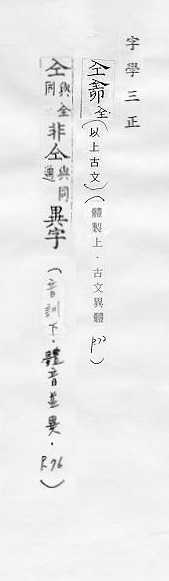 字學三正
仝全(以上古文)(體製上·古文異體 P.72)
仝與全同非仝與同通異字(音訓下·體音並異·P.76)